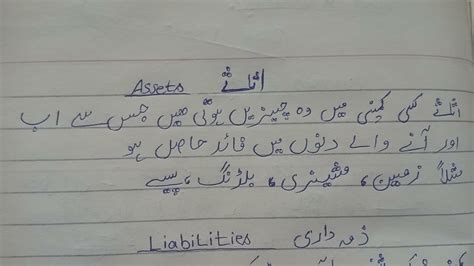 Assets اثاثے
اثاثے کسی کمپنی میں وہ چیزیں ہوتی ہیں جس سے اب
اور آنے والے دنوں میں فائد حاصل ہو
مثلاً زمین، مشینری، بلڈنگ، پیسے
Liabilities ذمہ داری